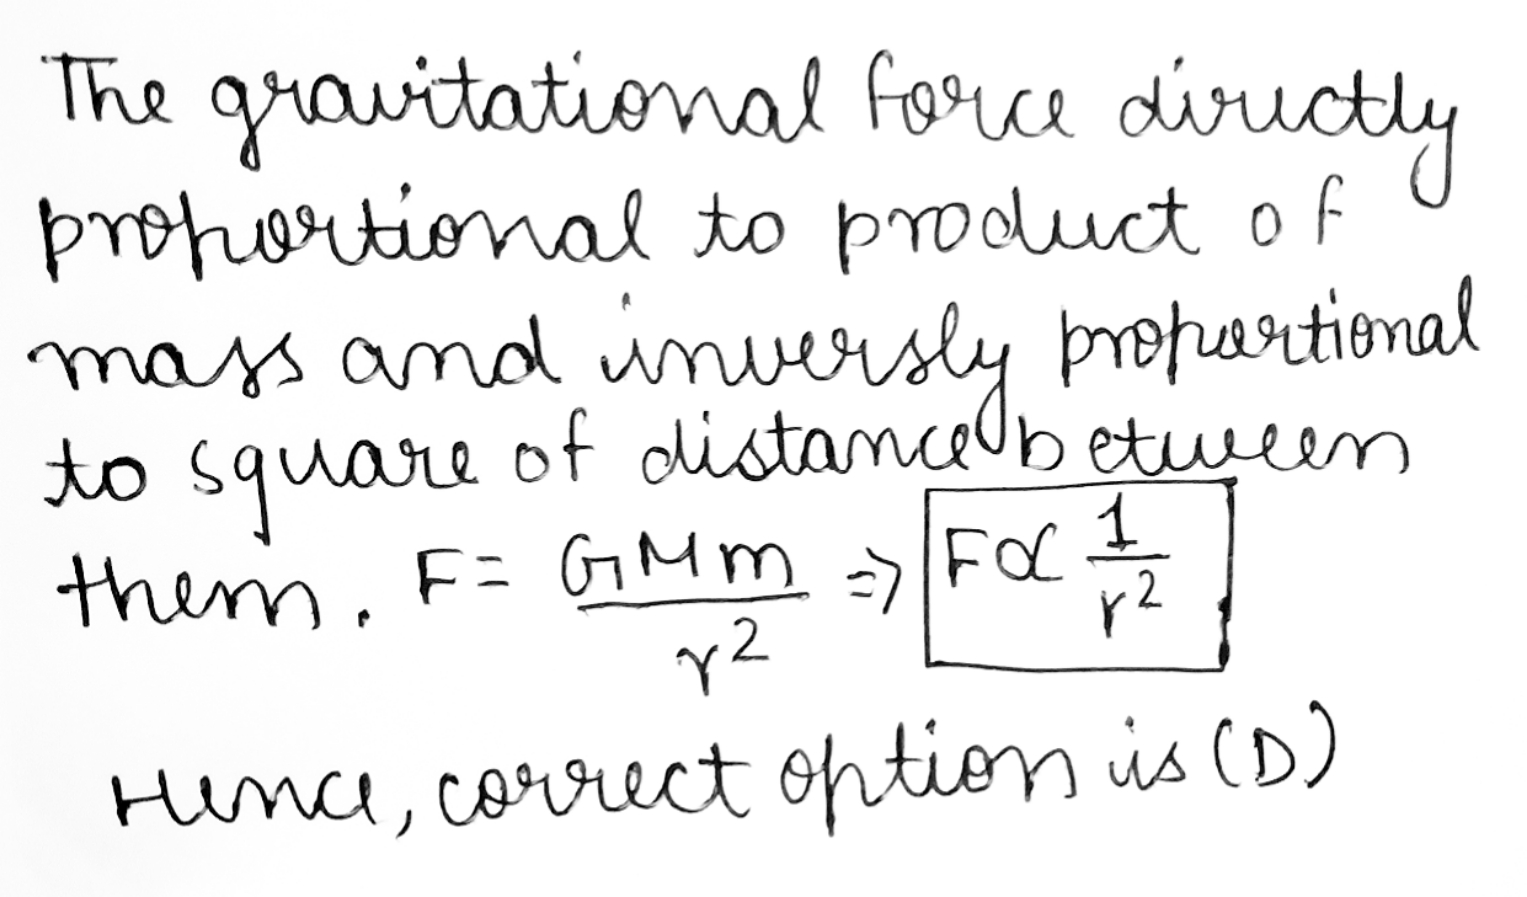 The gravitational force directly
proportional to product of
mass and inversly proportional
to square of distance between
them. F = GMm/r² ⇒ F ∝ 1/r²
Hence, correct option is (D)